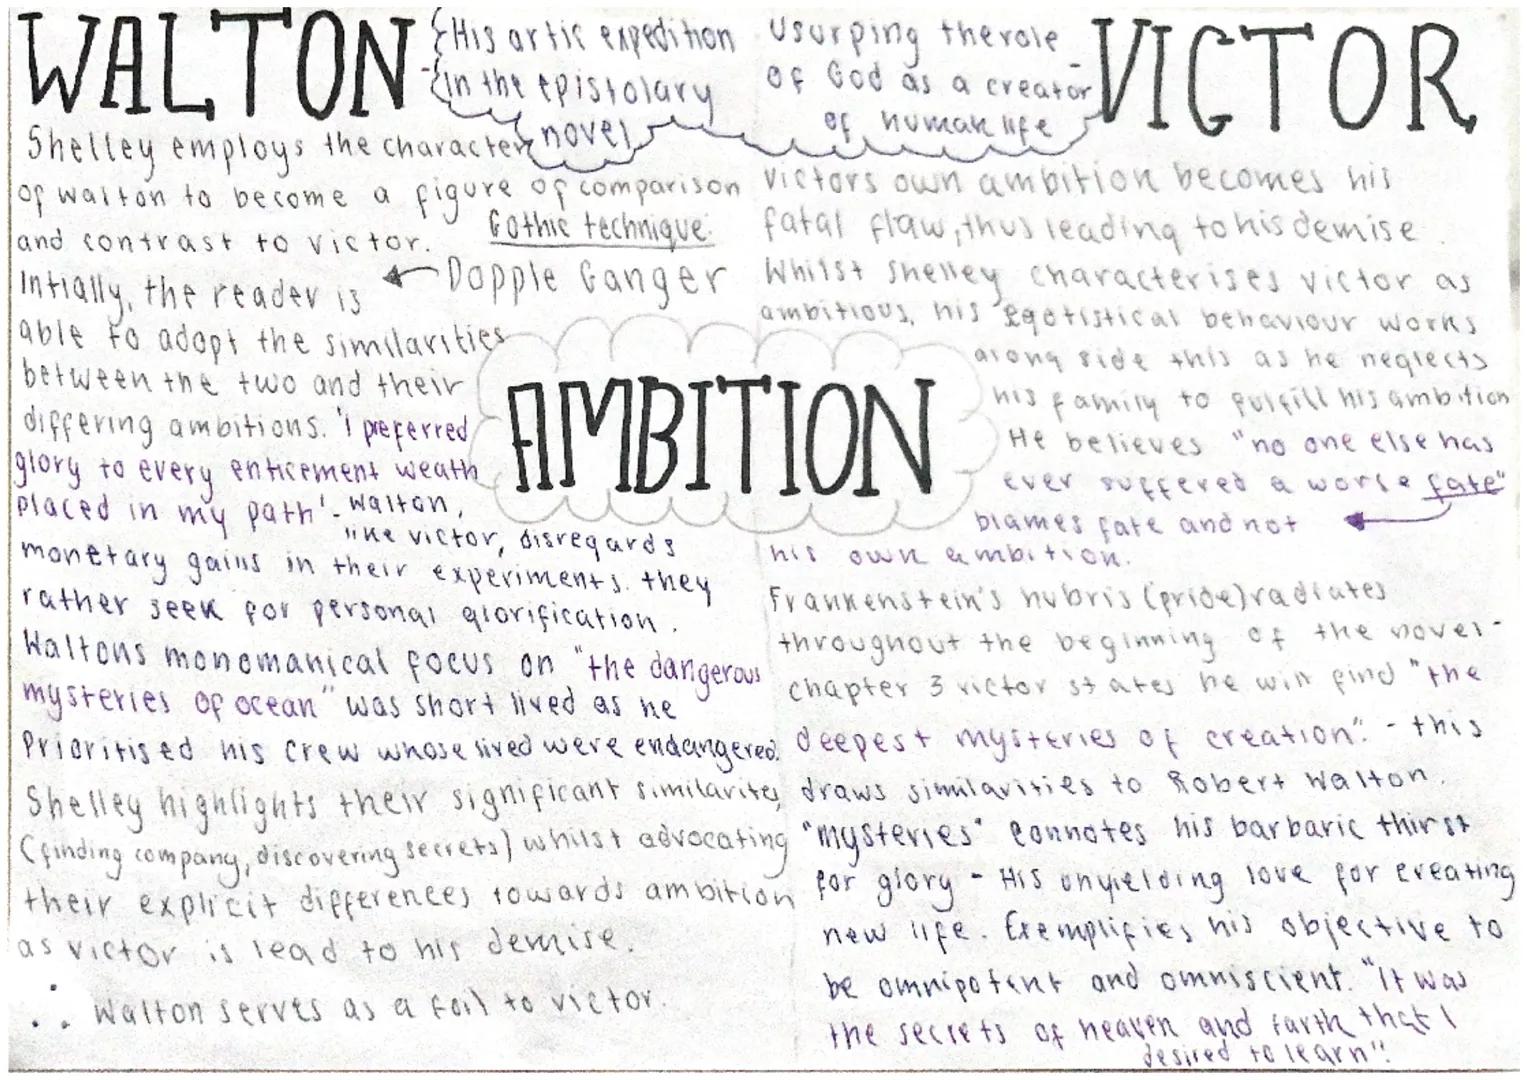 WALTON
His artic expedition
in the epistolary
novel
Shelley employs the character
of walton to become a figure of comparison
and contrast to victor.
Gothic technique:
Dopple Ganger
Intially, the reader is
able to adopt the similarities
between the two and their
differing ambitions. 'I preferred
glory to every enticement weath
placed in my path' - Walton,
like victor, disregards
monetary gains in their experiments. they
rather seek for personal glorification.
Waltons monomanical focus on "the dangerous
mysteries of ocean" was short lived as he
Prioritised his crew whose lived were endangered.
Shelley highlights their significant similarites
(finding company, discovering secrets) whilst advocating
their explicit differences towards ambition
as victor is lead to his demise.
∴ Walton serves as a foil to victor.
AMBITION
VICTOR
Usurping the role
of God as a creator
of human life
Victors own ambition becomes his
fatal flaw, thus leading to his demise.
Whilst Shelley characterises victor as
ambitious, his egotistical behaviour works
along side this as he neglects
his family to fulfill his ambition
He believes "no one else has
ever suffered a worse fate"
blames fate and not
his own ambition.
Frankenstein's hubris (pride) radiates
throughout the beginning of the novel-
chapter 3 victor states he will find "the
deepest mysteries of creation". - this
draws similarities to Robert Walton.
"mysteries" connotes his barbaric thirst
for glory - His unyielding love for creating
new life. Exemplifies his objective to
be omnipotent and omniscient. "It was
the secrets of heaven and earth that I
desired to learn".